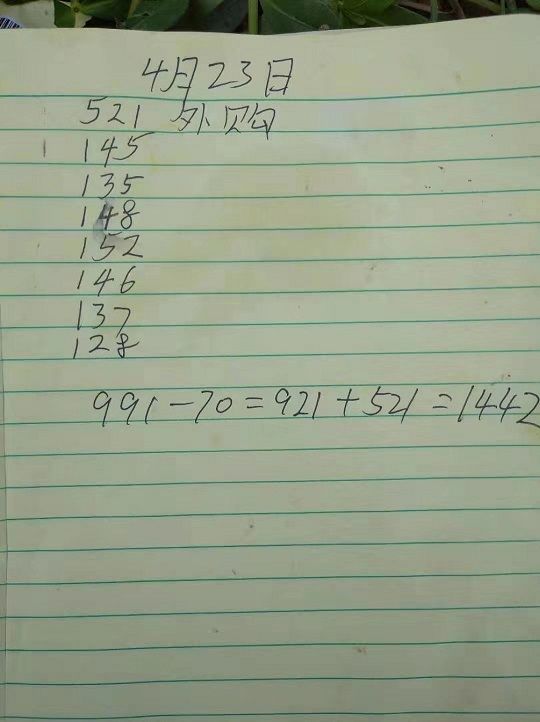 4月23日
521 外购
145
135
148
152
146
137
128
991-70=921+521=1442